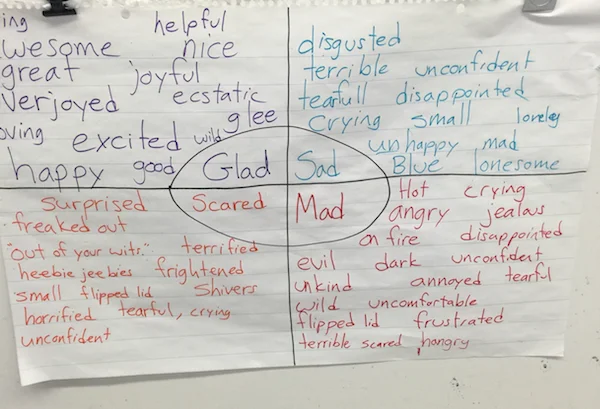 ing helpful
wesome nice
great joyful
verjoyed ecstatic
oving excited wild glee
happy good Glad
disgusted
terrible unconfident
tearfull disappointed
Crying small loneley
unhappy mad
Sad Blue lonesome
surprised Scared
freaked out
"out of your wits." terrified
heebie jeebies frightened
small flipped lid Shivers
horrified tearful, crying
unconfident
Hot crying
Mad angry jealous
on fire disappointed
evil dark unconfident
unkind annoyed tearful
wild uncomfortable
flipped lid frustrated
terrible scared hangry